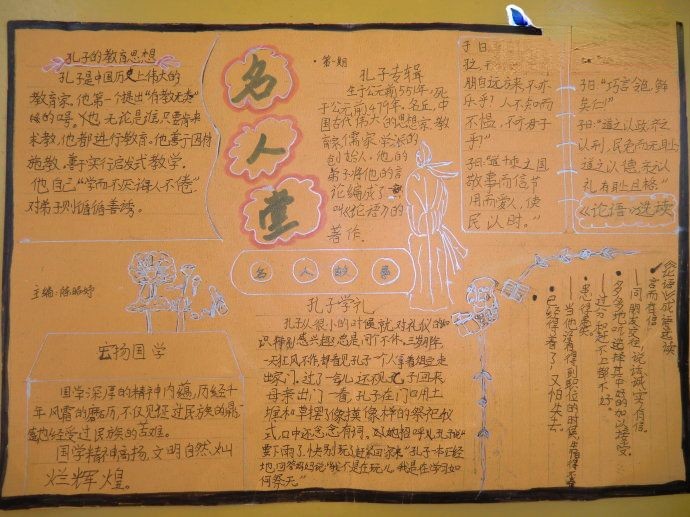 孔子的教育思想
孔子是中国历史上伟大的
教育家,他第一个提出"有教无类"
他无论是谁,只要肯来
求教,他都进行教育。他善于因材
施教,善于实行启发式教学,
他自己"学而不厌诲人不倦"
对弟子则循循善诱。
名
人
堂
第一期
孔子专辑
生于公元前551年,死
于公元前479年,名丘,中
国古代伟大的思想家,教
育家,儒家学派的
创始人,他的
弟子将他的言
论编成了一
叫《论语》的
著作.
子曰
朋自远方来,不亦
乐乎?人不知而
不愠,不亦君子
乎"
子曰:道千乘之国
敬事而信,节
用而爱人,使
民以时。"
子曰:"巧言令色,鲜
矣仁!"
子曰:"道之以政,齐之
以刑,民免而无耻;
道之以德,齐之以
礼,有耻且格."
《论语》选读
主编:陈
名人故事
宏扬国学
国学深厚的精神内蕴,历经千
年风霜的磨历,不仅见证过民族的鼎
盛,也经受过民族的苦难。
国学精神高扬,文明自然灿
烂辉煌。
孔子学礼
孔子从很小的时候就对礼仪
感兴趣,总是问个不休。
天狂风不作,却看见孔子一个人拿着
出家门,过了一会儿还不见孔子回来
母亲出门一看,孔子在门口用土
堆和草摆像模像样的祭祀仪
式,口中还念念有词,
要下雨了,快别玩了赶紧回家来"孔子一本正经
地回答妈妈说"我不是在玩儿,我是在学习如
何祭天"
《论语》成语选读
言而有信
——同朋友交往,说话诚实有信。
多多地听,选择其中好的加以接受
过分和达不上都不好。
患得患失